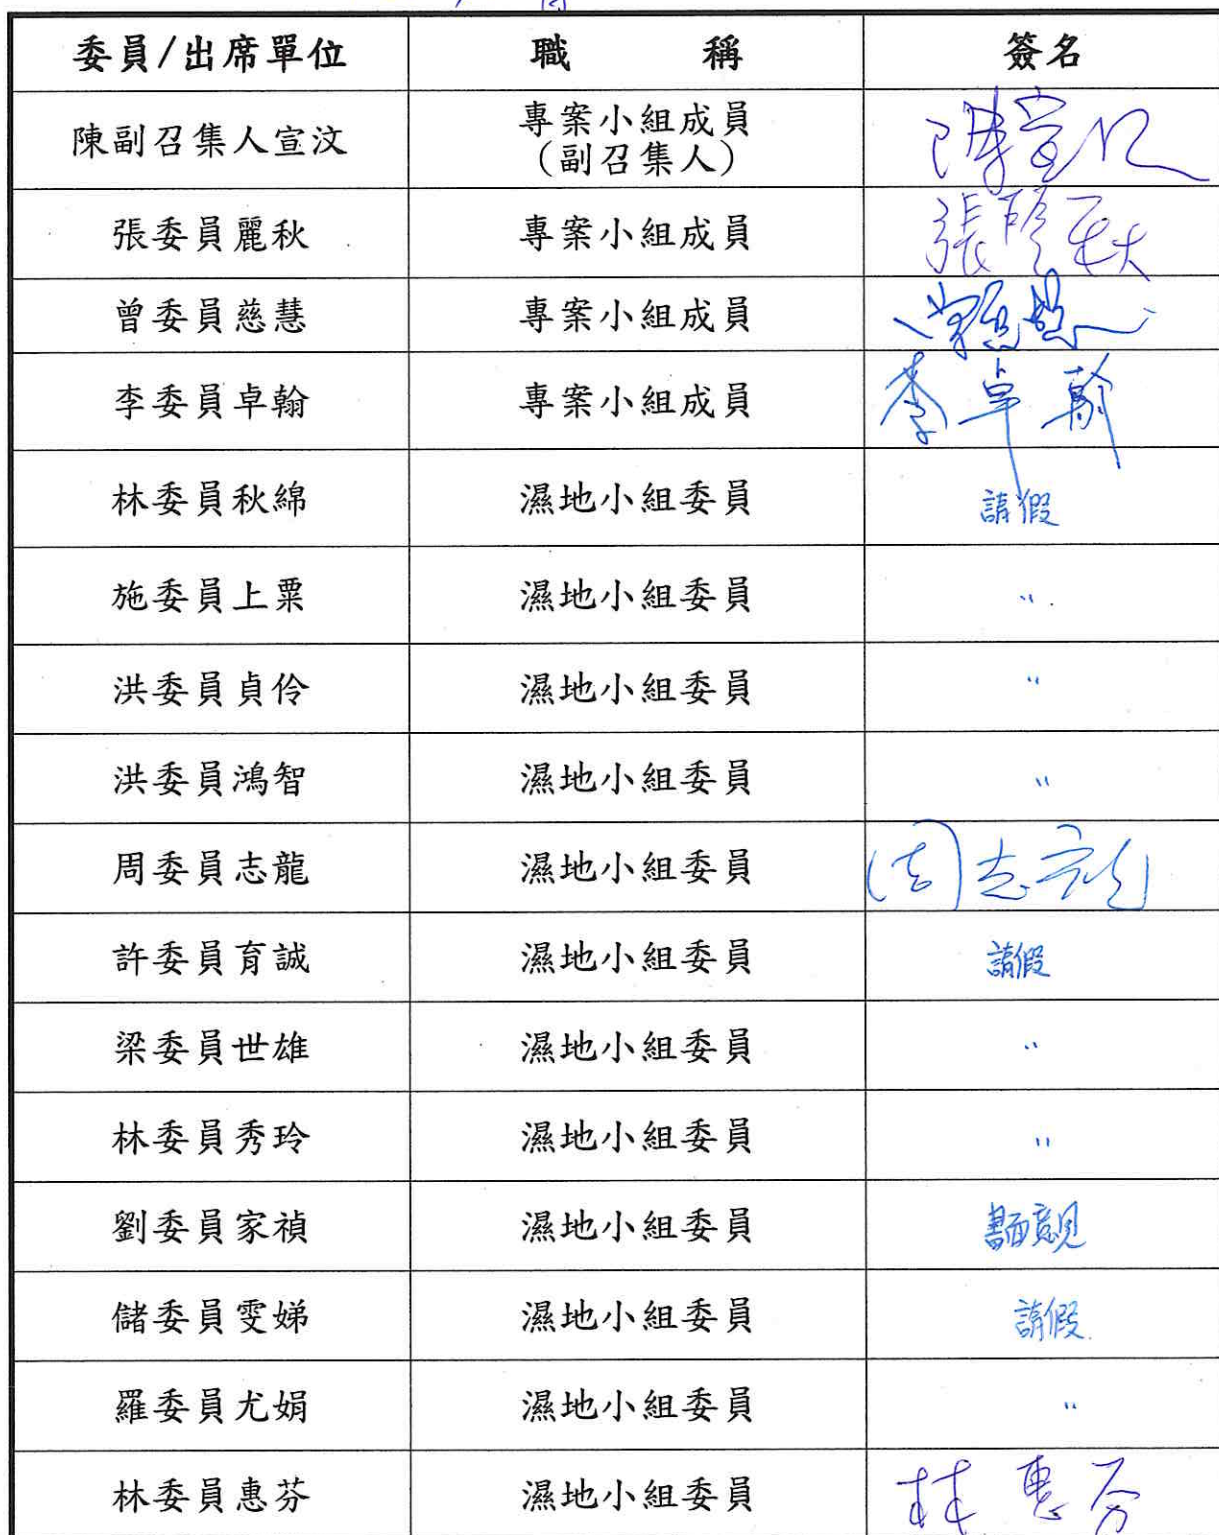 委員/出席單位 職 稱 簽名
陳副召集人宣汶 專案小組成員
(副召集人) 陳宣汶
張委員麗秋 專案小組成員 張麗秋
曾委員慈慧 專案小組成員 曾慈慧
李委員卓翰 專案小組成員 李卓翰
林委員秋綿 濕地小組委員 請假
施委員上粟 濕地小組委員 〃
洪委員貞伶 濕地小組委員 〃
洪委員鴻智 濕地小組委員 〃
周委員志龍 濕地小組委員 周志龍
許委員育誠 濕地小組委員 請假
梁委員世雄 濕地小組委員 〃
林委員秀玲 濕地小組委員 〃
劉委員家禎 濕地小組委員 書面意見
儲委員雯娣 濕地小組委員 請假
羅委員尤娟 濕地小組委員 〃
林委員惠芬 濕地小組委員 林惠芬